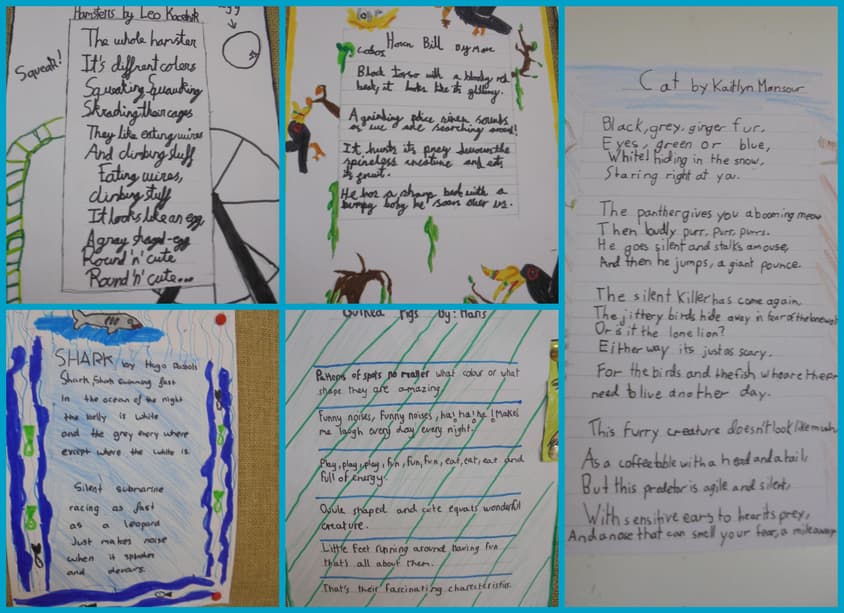 Hamsters by Leo
Squeak!
The whole hamster
It's diffrent colors
Squeaking Squeaking
their cages
They like eating wires
And climbing stuff
Eating wires,
climbing stuff
It looks like an egg
A gray shaped-egg
Round 'n' cute
Round 'n' cute...
Horn Bill
Black torso with a bloody red
beak, it looks like its
A police siren sounds
as we are searching
It hunts its prey
spineless creature and eats
its fruit.
He has a sharp beak with a
bumpy body he soars over us.
Cat by Kaitlyn Mansour
Black, grey, ginger fur,
Eyes, green or blue,
White! hiding in the snow,
Staring right at you.
The panther gives you a booming meow
Then loudly purr, purr, purrs.
He goes silent and stalks a mouse,
And then he jumps, a giant pounce.
The silent killer has come again
The jittery birds hide away in fear of the
Or is it the lone lion?
Either way its just as scary.
For the birds and the fish who are there
need to live another day.
This furry creature doesn't look like much
As a coffee table with a head and a tail,
But this predetor is agile and silent,
With sensitive ears to hear its prey,
And a nose that can smell your fear, a mile away
SHARK by Hugo
Shark, Shark swimming fast
In the ocean of the night
the belly is white
and the grey every where
except where the white is.
Silent submarine
racing as fast
as a leopard
Just makes noise
when it
and devours.
Guinea Pigs by: Hans
Patterns of spots no matter what colour or what
shape they are amazing.
Funny noises, Funny noises, ha! ha! he! Makes
me laugh every day every night.
Play, play, play, fun, fun, fun, eat, eat, eat and
full of energy.
Ovule shaped and cute equals wonderful
creature.
Little feet running around having fun
that's all about them.
That's their fascinating characteristics.